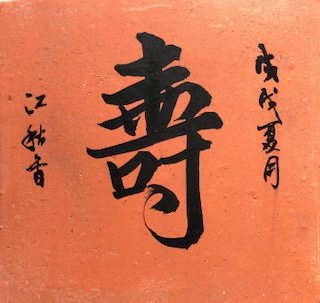 戊戌夏月
壽
江秋香